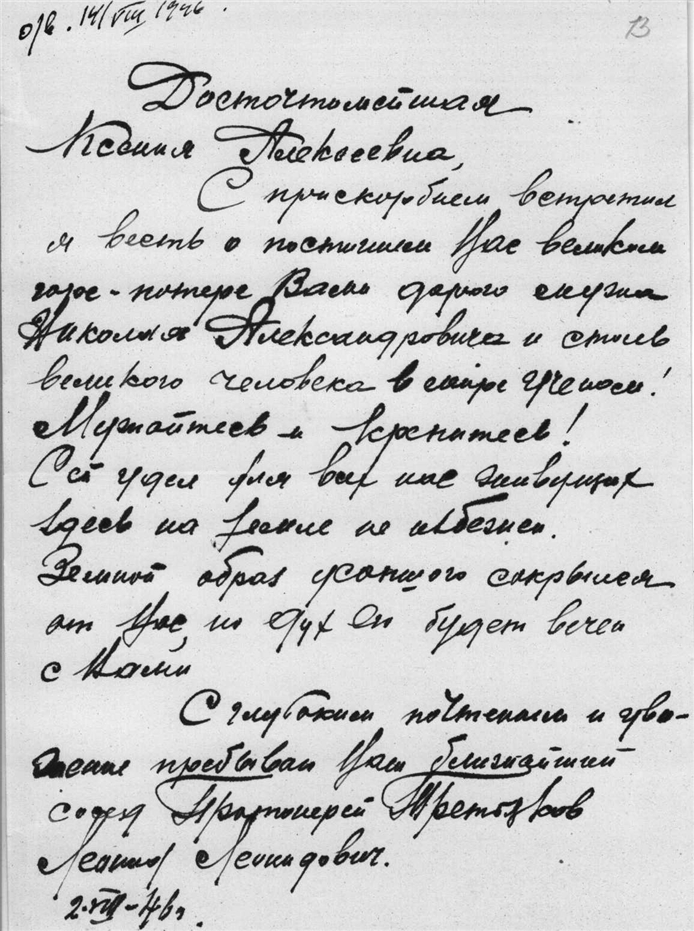 о/в. 14/VIII 1946.
13
Досточтимейшая
Ксения Алексеевна,
С прискорбием встретил
я весть о постигшем Вас великом
горе - потере Вами дорого мужа
Николая Александровича и столь
великого человека в мире ученом!
Мужайтесь и крепитесь!
Сей удел для всех нас живущих
здесь на земле не избежен.
Земной образ усопшого сокрылся
от Вас, но дух Ея будет вечен
с Вами
С глубоким почтением и ува-
жение пребываю Ваш ближайший
сосед Протоиерей Третьяков
Леонид Леонидович.
2-VIII-46г.